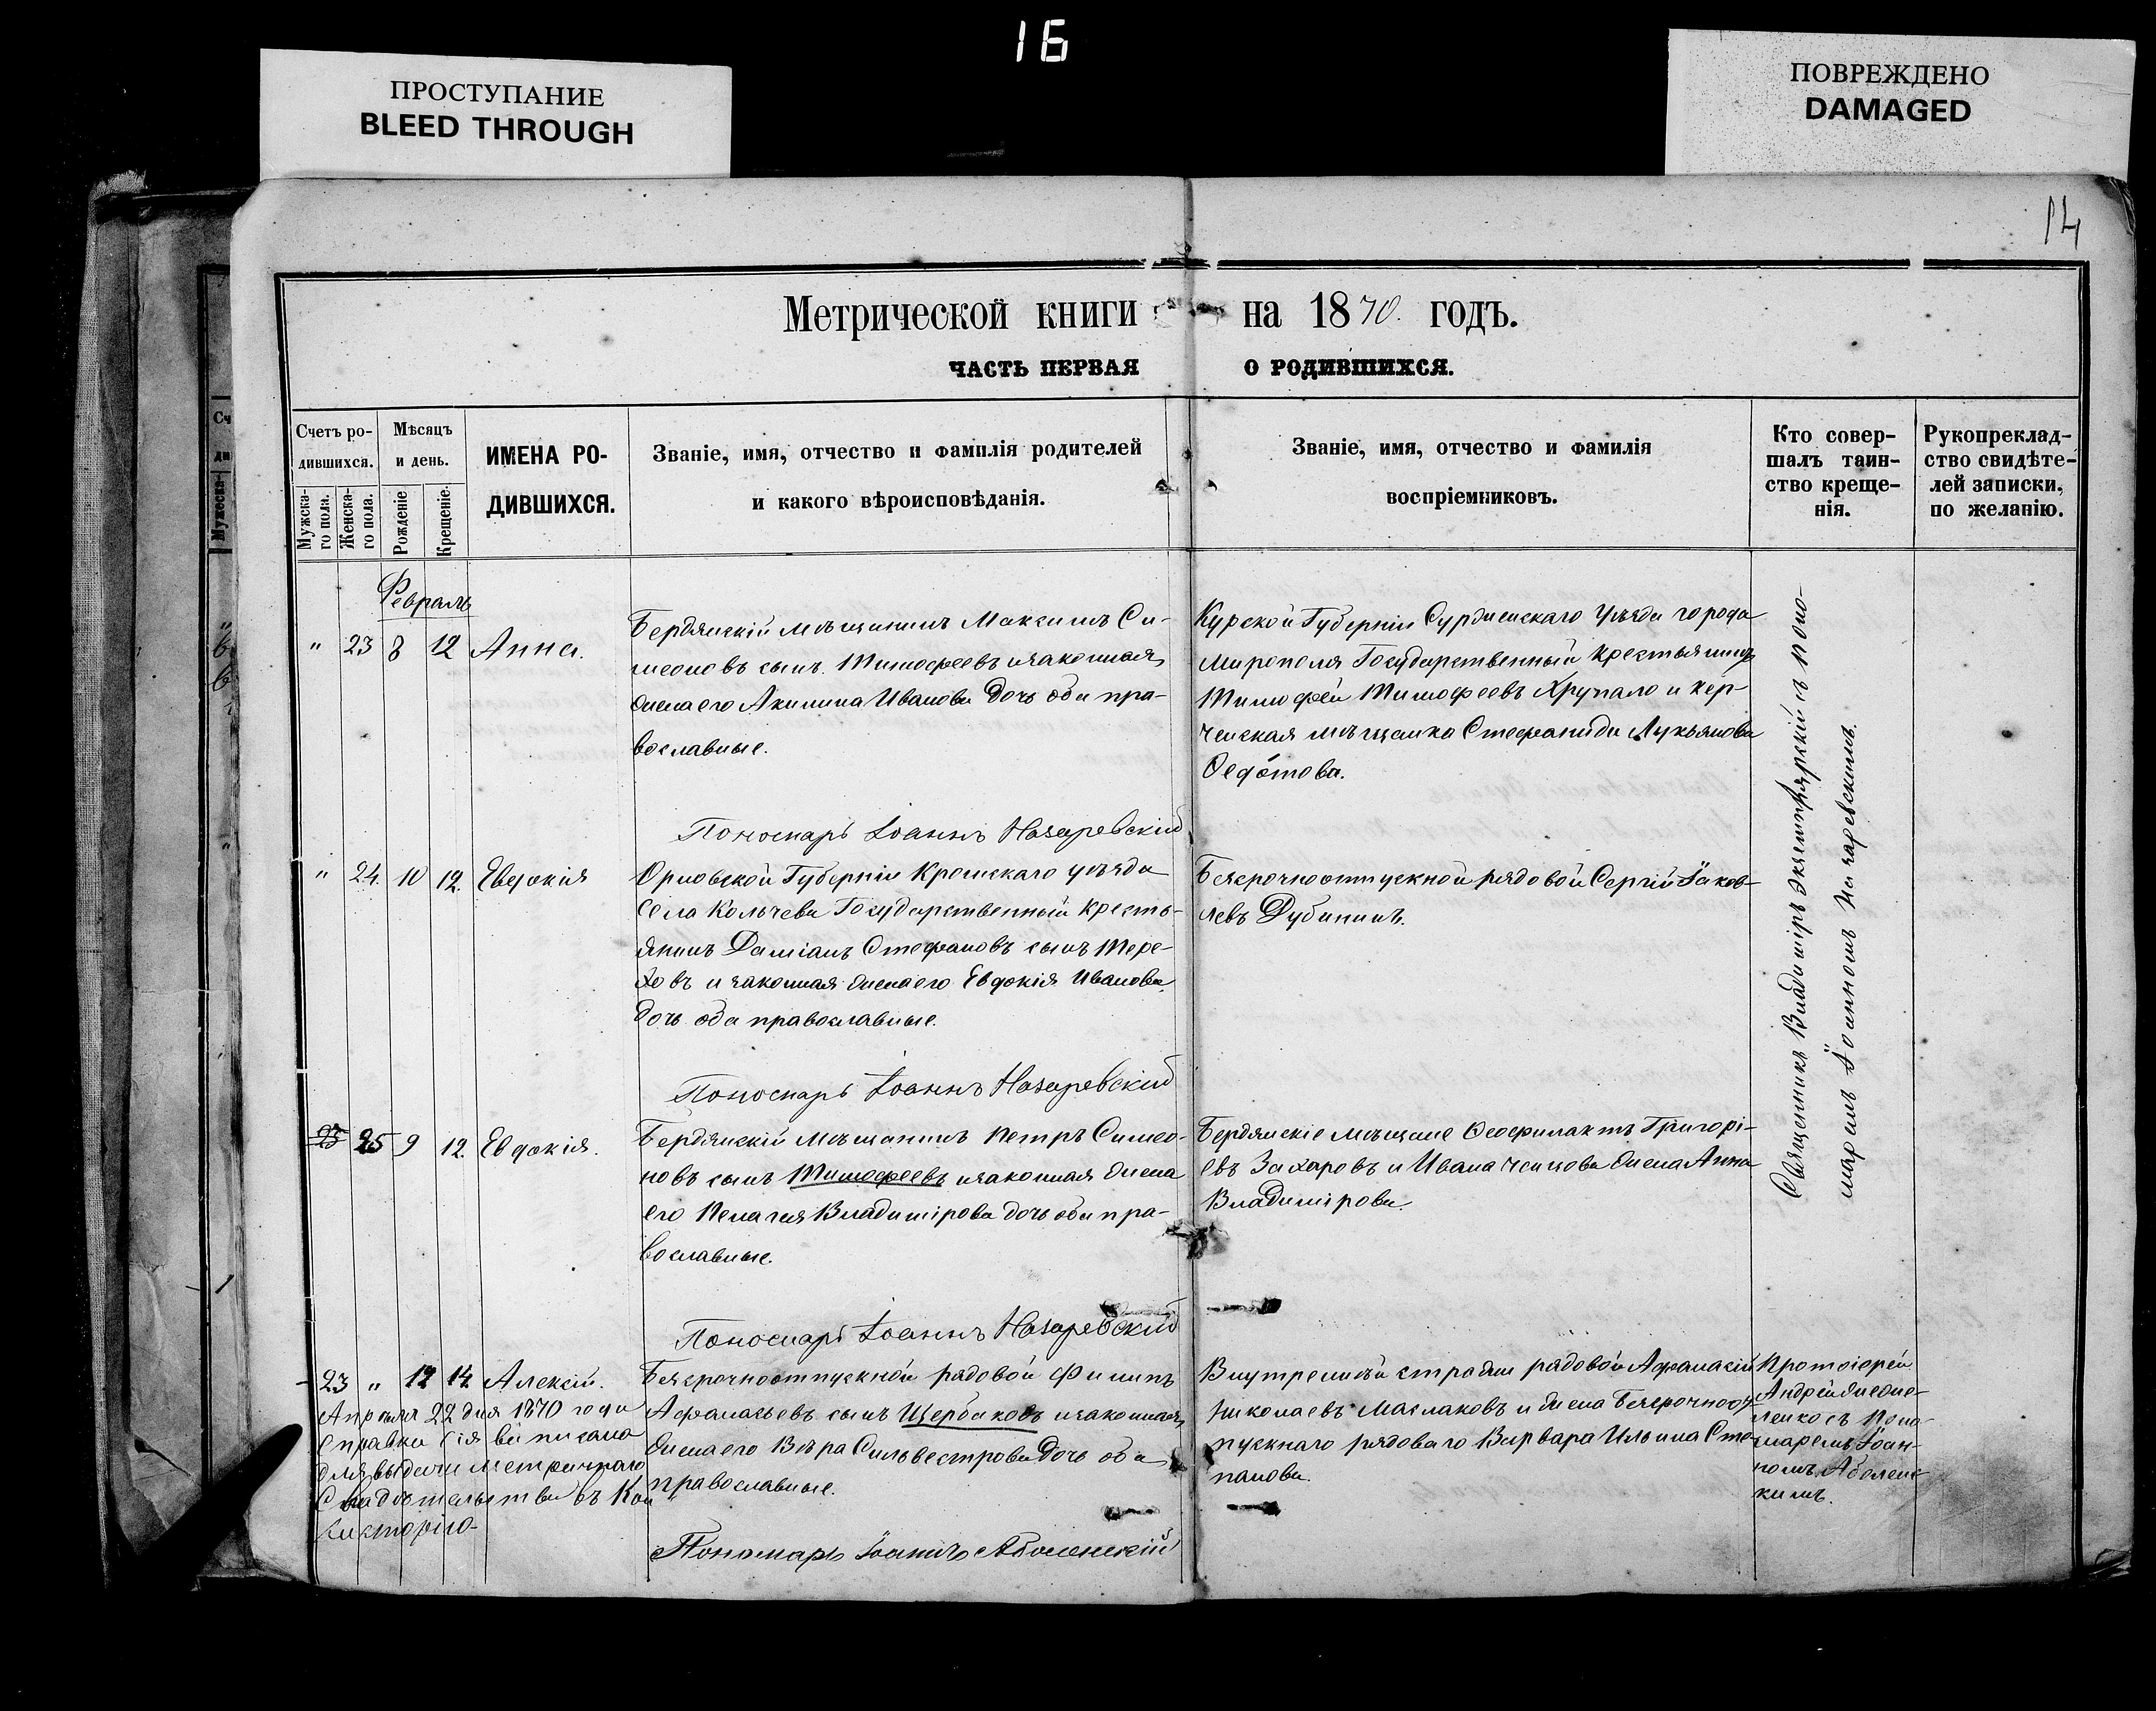 16
ПРОСТУПАНИЕ
BLEED THROUGH
ПОВРЕЖДЕНО
DAMAGED
14
Метрической книги на 1870. годъ.
ЧАСТЬ ПЕРВАЯ О РОДИВШИХСЯ.
Счетъ ро-
дившихся.
Мужска-
го пола.
Женска-
го пола.
Мѣсяцъ
и день.
Рожденіе
Крещеніе.
ИМЕНА РО-
ДИВШИХСЯ.
Званіе, имя, отчество и фамилія родителей
и какого вѣроисповѣданія.
Званіе, имя, отчество и фамилія
воспріемниковъ.
Кто совер-
шалъ таин-
ство креще-
нія.
Рукопреклад-
ство свидѣте-
лей записки,
по желанію.
Февраль
" 23 8 12 Анна.
Бердянскій мѣщанинъ Максимъ Си-
меоновъ сынъ Тимофеевъ и законная
жена его Акилина Иванова дочь оба пра-
вославные.
Курской Губерніи Суджанскаго Уѣзда города
Мирополя Государственный крестьянинъ
Тимофей Тимофеевъ Хрупало и кер-
ченская мѣщанка Стефанида Лукьянова
Ѳедотова.
Пономарь Іоаннъ Назаревскій
" 24. 10 12. Евдокія
Орловской Губерніи Кромскаго уѣзда
Села Кольчева Государственный кресть-
янинъ Даміанъ Стефановъ сынъ Тере-
ховъ и законная жена его Евдокія Иванова
дочь оба православные.
Безсрочноотпускной рядовой Сергій Іаков-
левъ Дубининъ.
Пономарь Іоаннъ Назаревскій
25 9 12. Евдокія.
Бердянскій мѣщанинъ Петръ Симео-
новъ сынъ Тимофеевъ и законная жена
его Пелагія Владимірова дочь оба пра-
вославные.
Бердянскіе мѣщане Ѳеофилактъ Григорі-
евъ Захаровъ и Ивана Ченцова жена Анна
Владимірова.
Священникъ Владиміръ с поно-
маремъ Іоанномъ Назаревскимъ.
Пономарь Іоаннъ Назаревскій
23 " 12 14 Алексій.
Безсрочноотпускной рядовой Филипъ
Афанасьевъ сынъ Щербаковъ и законная
жена его Вѣра Сильвестрова дочь оба
православные.
Внутренней стражи рядовой Афанасій
Николаевъ Маслаковъ и жена Безсрочноот-
пускнаго рядоваго Варвара Ильина Сте-
панова.
Протоіерей
Андрей
ленко съ Поно-
маремъ Іоан-
номъ Аболенс-
кимъ.
Апрѣля 22 дня 1870 года
справка сія выписана
для выдачи метричнаго
Свидѣтельства въ Кон-
систорію.
Пономарь Іоаннъ Аболенскій